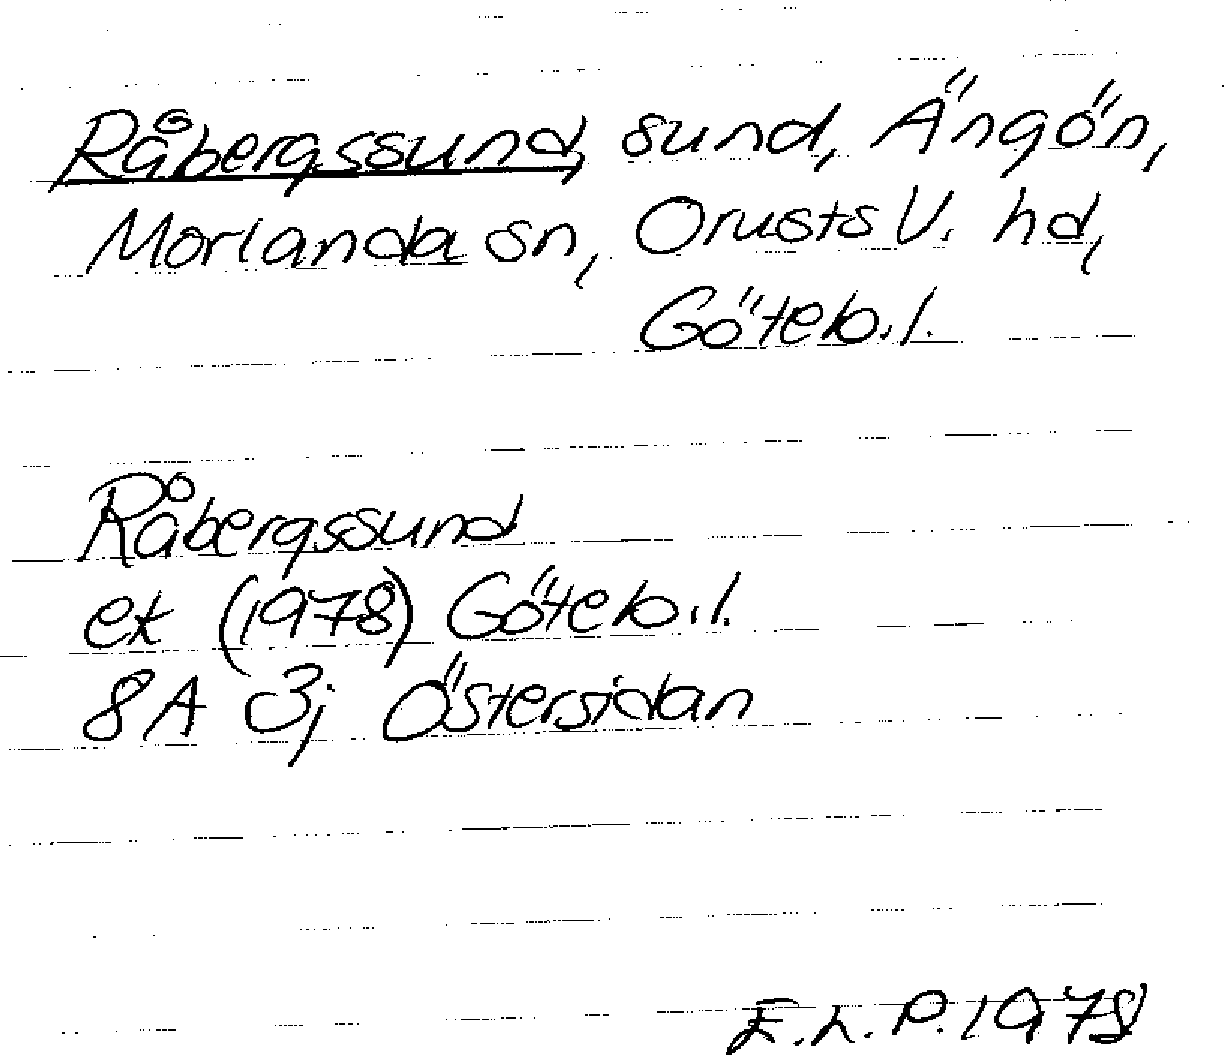 Råbergssund, sund, Ängön,
Morlanda sn, Orusts V. hd,
Göteb.l.
Råbergssund
ek (1978) Göteb.l.
8A 3j Östersidan
E.L.P. 1978